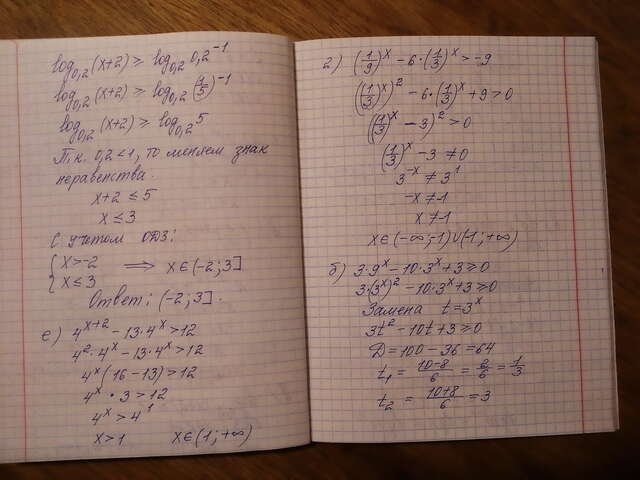 log₀,₂(x+2) ≥ log₀,₂ 0,2⁻¹
log₀,₂(x+2) ≥ log₀,₂ (1/5)⁻¹
log₀,₂(x+2) ≥ log₀,₂ 5
Т.к. 0,2<1, то меняем знак
неравенства.
x+2 ≤ 5
x ≤ 3
С учетом ОДЗ:
{ x>-2
x ≤ 3 ⟹ x∈(-2;3]
Ответ: (-2;3].
е) 4ˣ⁺² - 13·4ˣ > 12
4²·4ˣ - 13·4ˣ > 12
4ˣ(16-13) > 12
4ˣ · 3 > 12
4ˣ > 4¹
x>1 x∈(1;+∞)
2) (1/9)ˣ - 6·(1/3)ˣ > -9
((1/3)ˣ)² - 6·(1/3)ˣ + 9 > 0
((1/3)ˣ - 3)² > 0
(1/3)ˣ - 3 ≠ 0
3⁻ˣ ≠ 3¹
-x ≠ 1
x ≠ -1
x∈(-∞;-1)∪(-1;+∞)
б) 3·9ˣ - 10·3ˣ + 3 ≥ 0
3·(3ˣ)² - 10·3ˣ + 3 ≥ 0
Замена t=3ˣ
3t² - 10t + 3 ≥ 0
D = 100 - 36 = 64
t₁ = (10-8)/6 = 2/6 = 1/3
t₂ = (10+8)/6 = 3